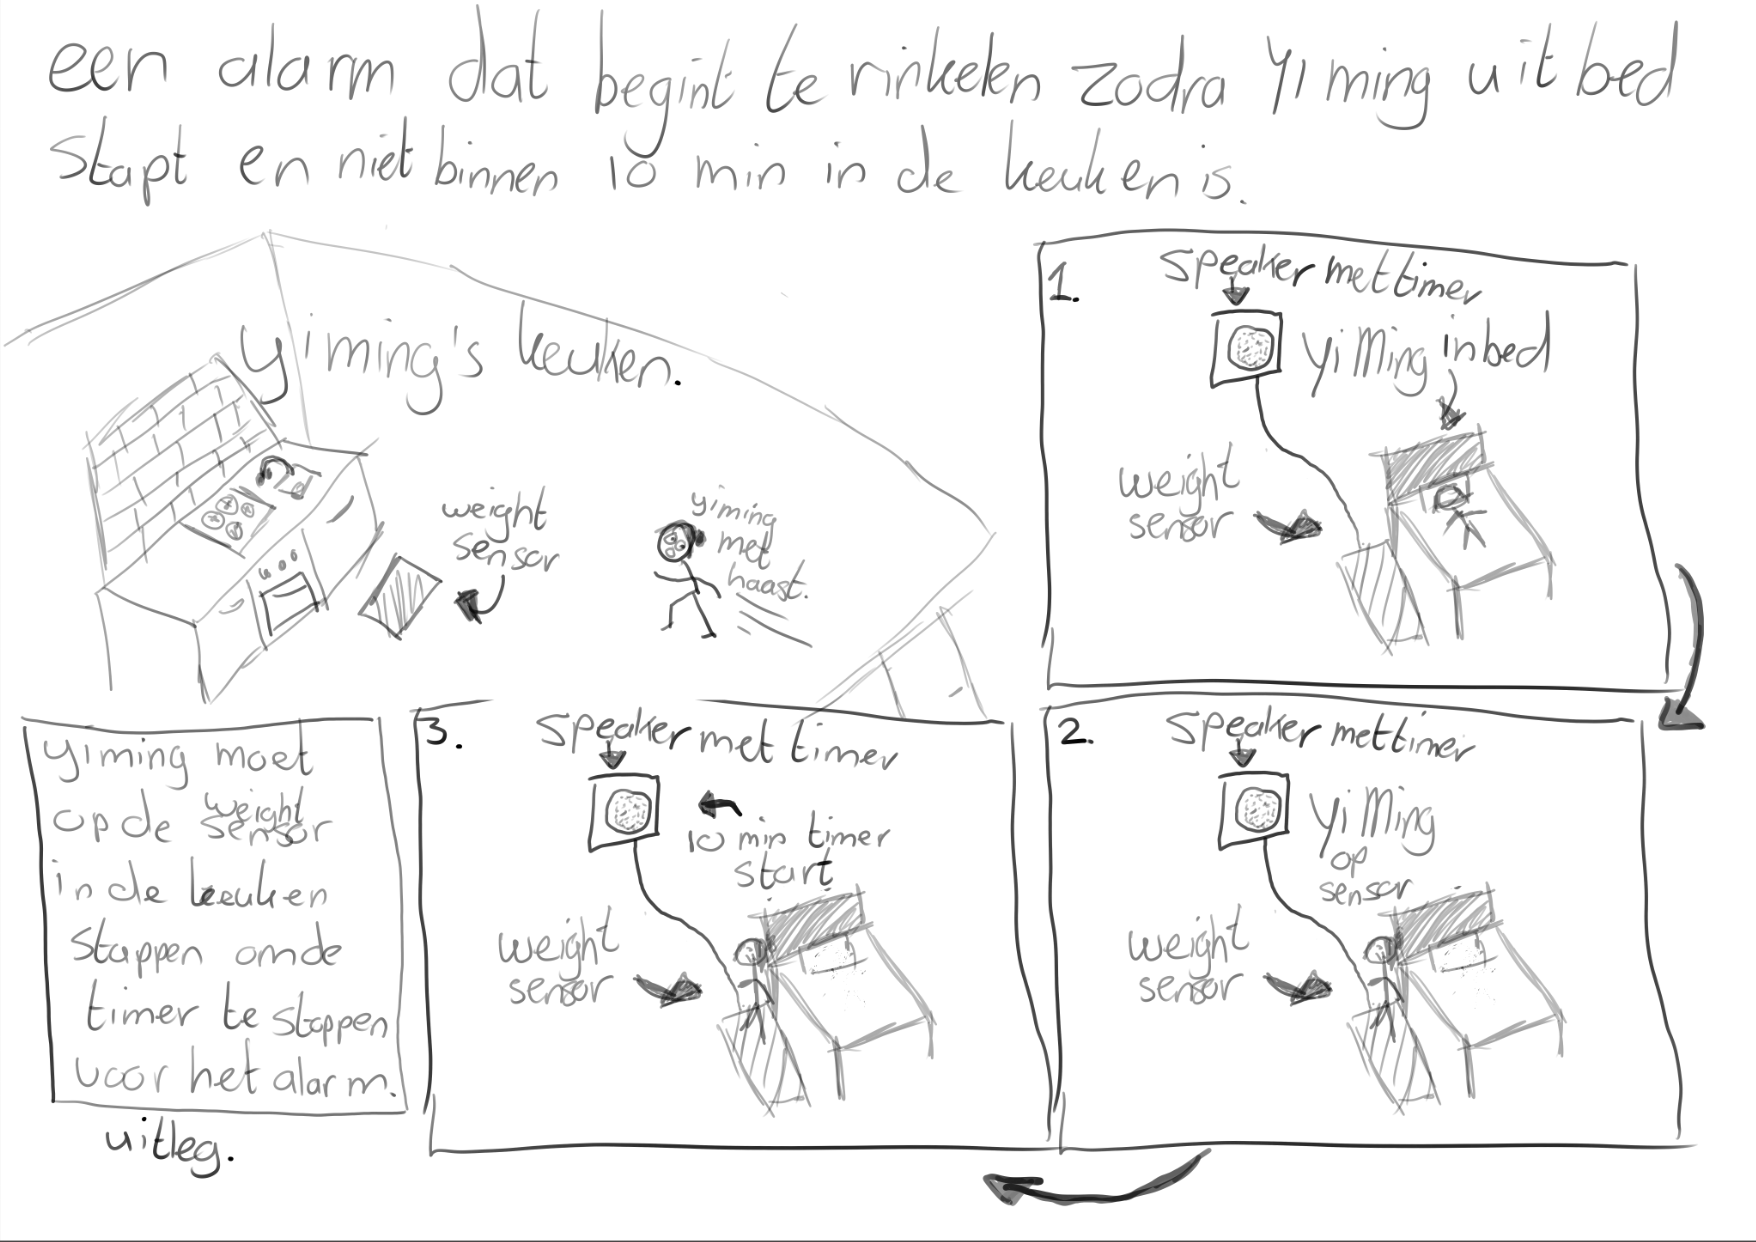 een alarm dat begint te rinkelen zodra Yi ming uit bed
stapt en niet binnen 10 min in de keuken is.
yiming's keuken.
weight
sensor
yiming
met
haast.
1.
speaker met timer
yi Ming in bed
weight
sensor
2.
speaker met timer
yi Ming
op
sensor
weight
sensor
3.
speaker met timer
10 min timer
start
weight
sensor
yiming moet
op de weight sensor
in de keuken
stappen om de
timer te stoppen
voor het alarm.
uitleg.